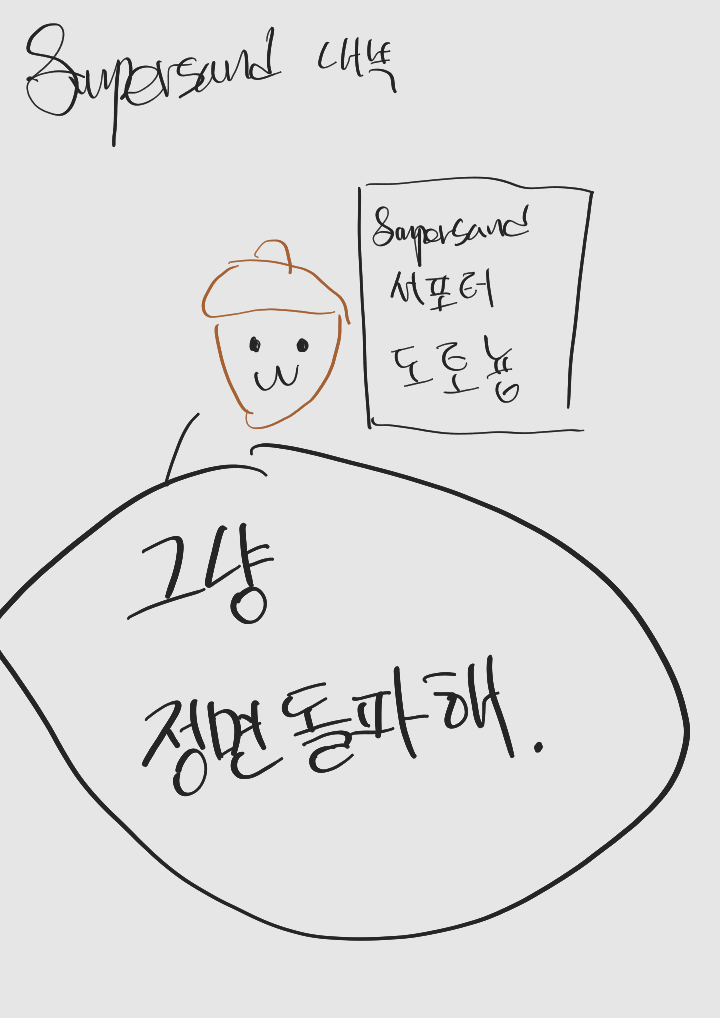 Supersand 대녁
Supersand
서포터
도로늅
그냥
정면돌파해.